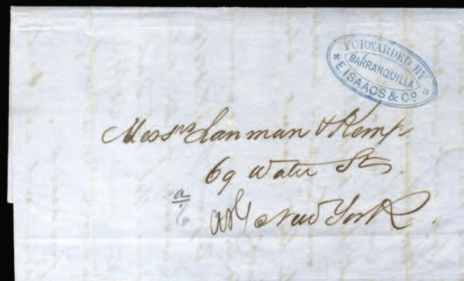 FORWARDED BY
BARRANQUILLA
* E. ISAACS & Co *
Messrs Lanman & Kemp
69 Water St.
New York
a